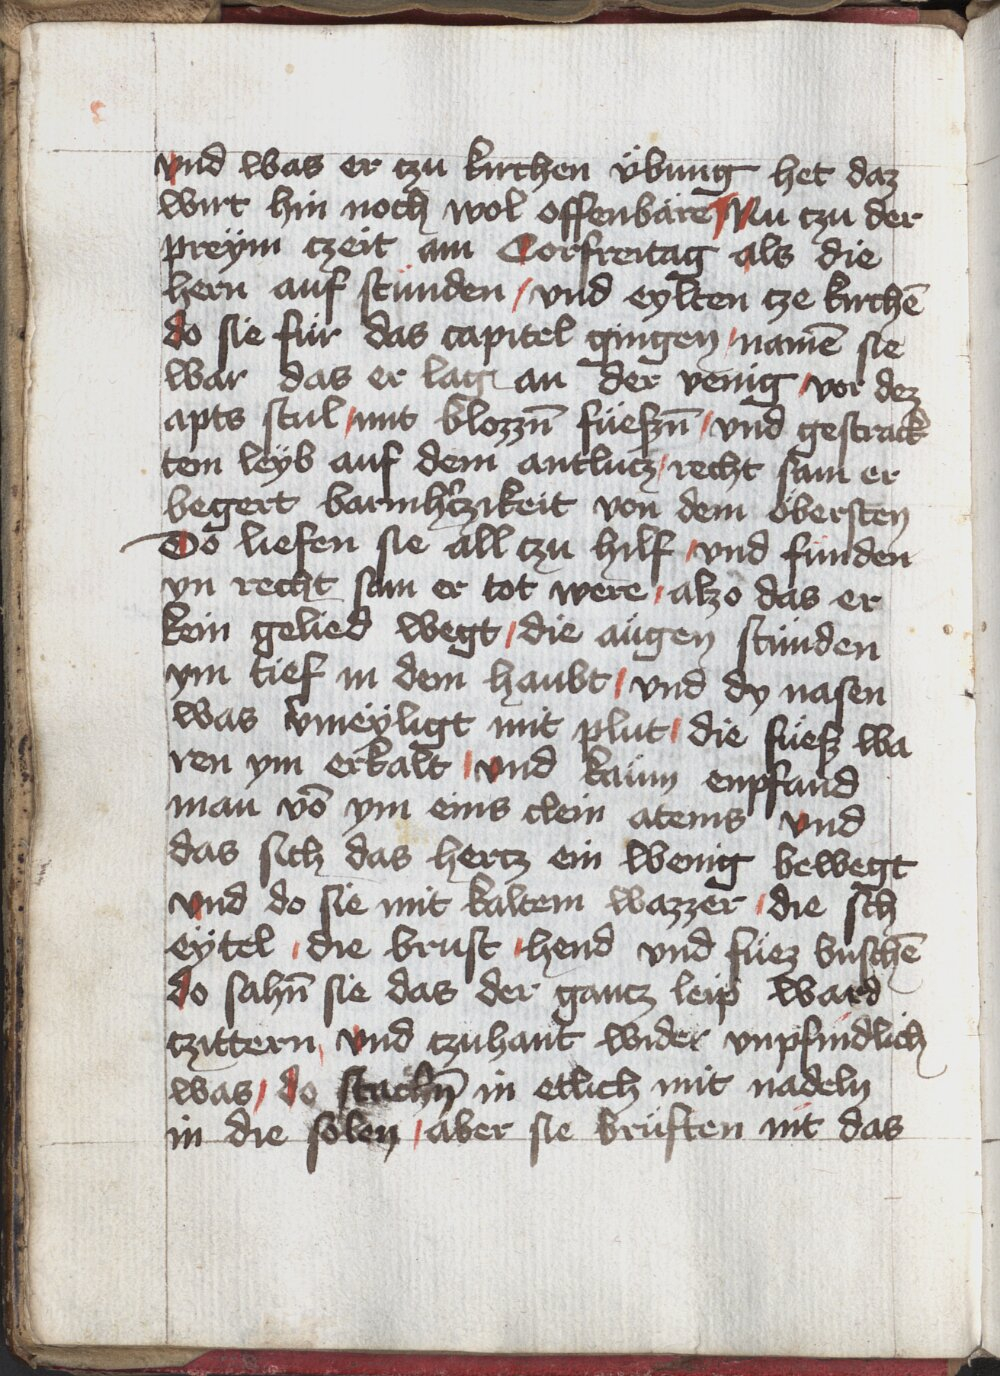 vnd was er czu kirchen übung het daz
wirt hin noch wol offenbare / Nu czu der
preym czeit am Corfreitag als die
hern auf stunden / vnd eylten cze kirchē
do sie für das capitel gingen / namē sie
war das er lag an der venig / vor dez
apts stul / mit blozzn̄ füeszn̄ / vnd gestrack
tem leyb auf dem antlucz / recht sam er
begert barmhʼczikeit von dem öbersten
Do liefen sie all czu hilf / vnd funden
yn recht sam er tot were / alzo das er
kein gelied wegt / die augen stunden
ym tief in dem haubt / vnd dy nasen
was vʼmeyligt mit plut / die füesz wa
ren ym erkalt / vnd kaum enpfand
man vō ym eins clein atems vnd
das sich das hertz ein wenig bewegt
vnd do sie mit kaltem wazzer / die sch
eytel / die brust / hend vnd füez buschē
do sahn̄ sie das der gancz leip ward
czittern / vnd czuhant wider vnpfindlich
was / do stachn̄ in etlich mit nadeln
in die solen / aber sie brüften nit das